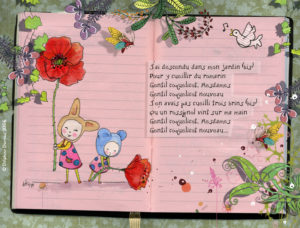 J'ai descendu dans mon jardin (bis)
Pour y cueillir du romarin
Gentil coquelicot, Mesdames
Gentil coquelicot nouveau
J'n'avais pas cueilli trois brins (bis)
Qu'un rossignol vint sur ma main
Gentil coquelicot, Mesdames
Gentil coquelicot, Mesdames
Gentil coquelicot nouveau...